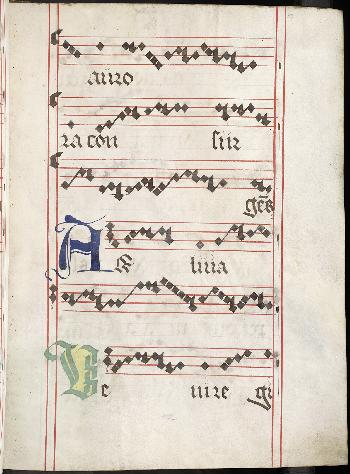 auro
ra con sur
gēs
A luia
Ve ni re gi